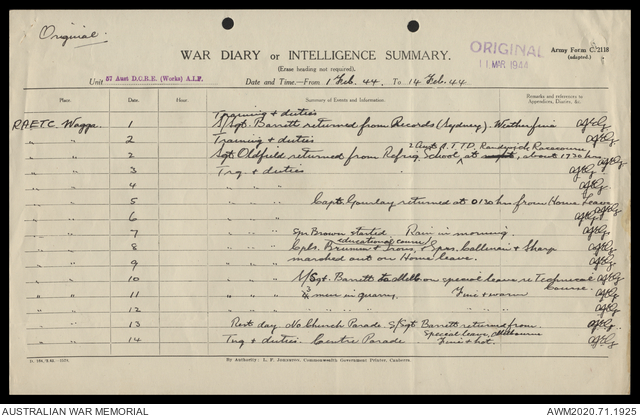 Original.
WAR DIARY or INTELLIGENCE SUMMARY.
(Erase heading not required).
ORIGINAL
11 MAR 1944
Army Form C. 2118
(adapted.)
Unit 57 Aust D.C.R.E. (Works) A.I.F. Date and Time—From 1 Feb. 44. To 14 Feb. 44
Place. Date. Hour. Summary of Events and Information. Remarks and references to Appendices, Diaries, &c.
Training & duties
RAETC Wagga. 1 S/Sgt. Barrett returned from Records (Sydney). Weather fine
" " 2 Training & duties
2 Aust A.T.T.D. Randwick Racecourse
" " 2 Sgt. Oldfield returned from Refrig School, at about 1730 hrs
" " 3 Trg & duties
" " 4 " " "
" " 5 " " " Capt. Gourlay returned at 0130 hrs from Home Leave
" " 6 " " "
" " 7 " " " Spr Brown started Rain in morning.
educational course
" " 8 " " " Cpls. & Sprs. & Sharp
" " 9 " " " marched out on Home leave.
" " 10 " " " S/Sgt. Barrett to Melb on special leave re Technical Course.
" " 11 " " " 3 men in quarry. Fine & warm
" " 12 " " "
" " 13 Rest day No Church Parade. S/Sgt. Barrett returned from
Special leave, Melbourne
" " 14 Trg & duties. Centre Parade Fine & hot.
By Authority: L. F. Johnston, Commonwealth Government Printer, Canberra.
AUSTRALIAN WAR MEMORIAL
AWM2020.71.1925